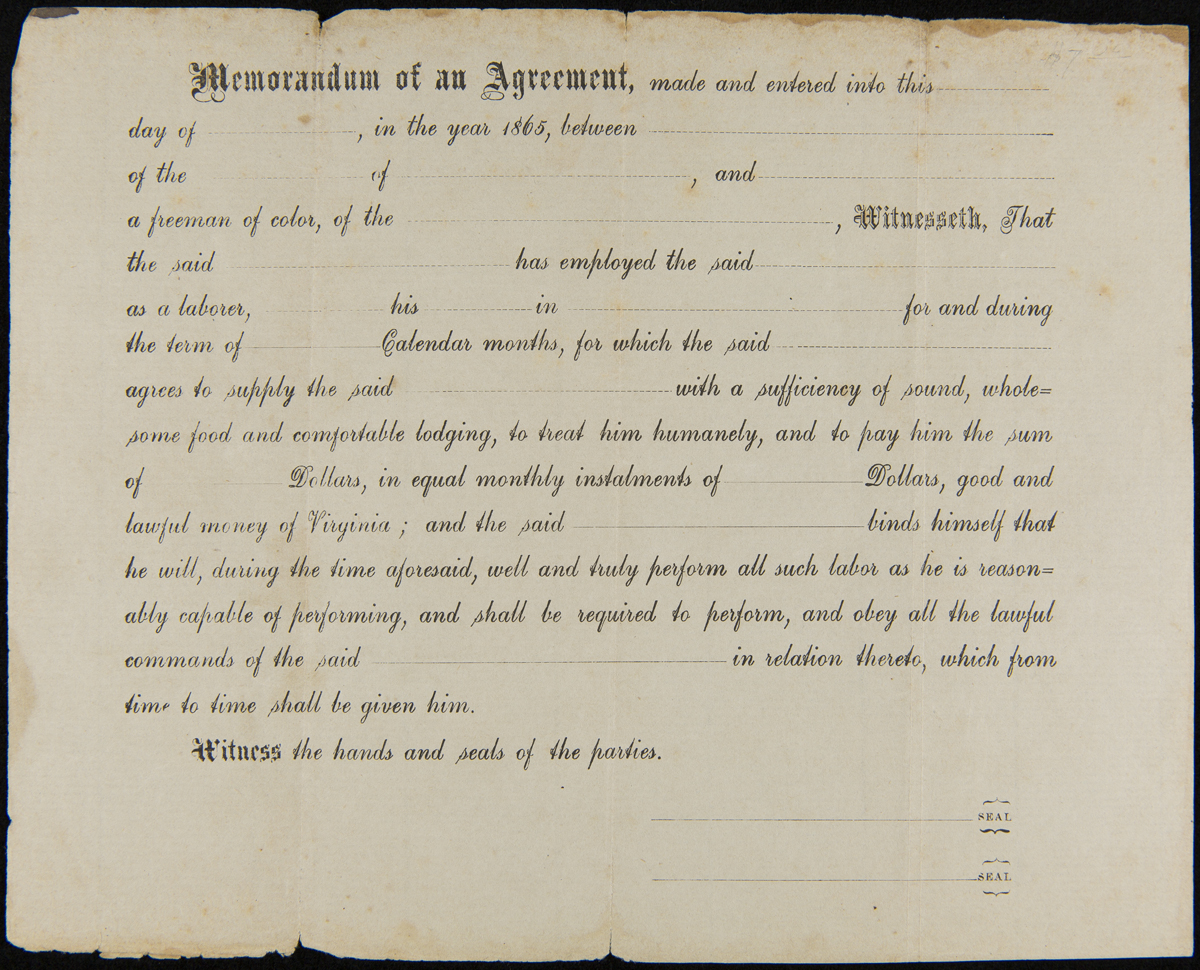 Memorandum of an Agreement, made and entered into this
day of , in the year 1865, between
of the of , and
a freeman of color, of the , Witnesseth, That
the said has employed the said
as a laborer, his in for and during
the term of Calendar months, for which the said
agrees to supply the said with a sufficiency of sound, whole=
some food and comfortable lodging, to treat him humanely, and to pay him the sum
of Dollars, in equal monthly instalments of Dollars, good and
lawful money of Virginia ; and the said binds himself that
he will, during the time aforesaid, well and truly perform all such labor as he is reason=
ably capable of performing, and shall be required to perform, and obey all the lawful
commands of the said in relation thereto, which from
time to time shall be given him.
Witness the hands and seals of the parties.
SEAL
SEAL